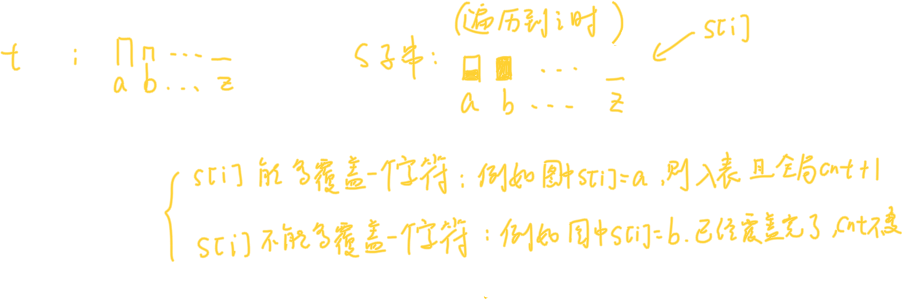 (遍历到i时)
t : a b ... z
S子串: a b ... z
s[i]
s[i]能多覆盖一个字符:例如图中s[i]=a,则入表且全局cnt+1
s[i]不能多覆盖一个字符:例如图中s[i]=b.已经覆盖完了,cnt不变